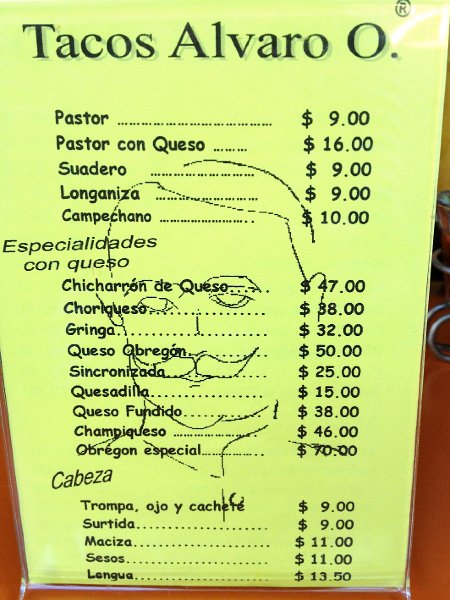 Tacos Alvaro O.®
Pastor ........................... $ 9.00
Pastor con Queso ........ $ 16.00
Suadero ..................... $ 9.00
Longaniza ..................... $ 9.00
Campechano ..................... $ 10.00
Especialidades
con queso
Chicharrón de Queso........ $ 47.00
Choriqueso..................... $ 38.00
Gringa........................... $ 32.00
Queso Obregón................ $ 50.00
Sincronizada................... $ 25.00
Quesadilla..................... $ 15.00
Queso Fundido............... $ 38.00
Champiqueso .................. $ 46.00
Obregon especial............. $ 70.00
Cabeza
Trompa, ojo y cachete $ 9.00
Surtida........................ $ 9.00
Maciza........................ $ 11.00
Sesos........................... $ 11.00
Lengua........................ $ 13.50